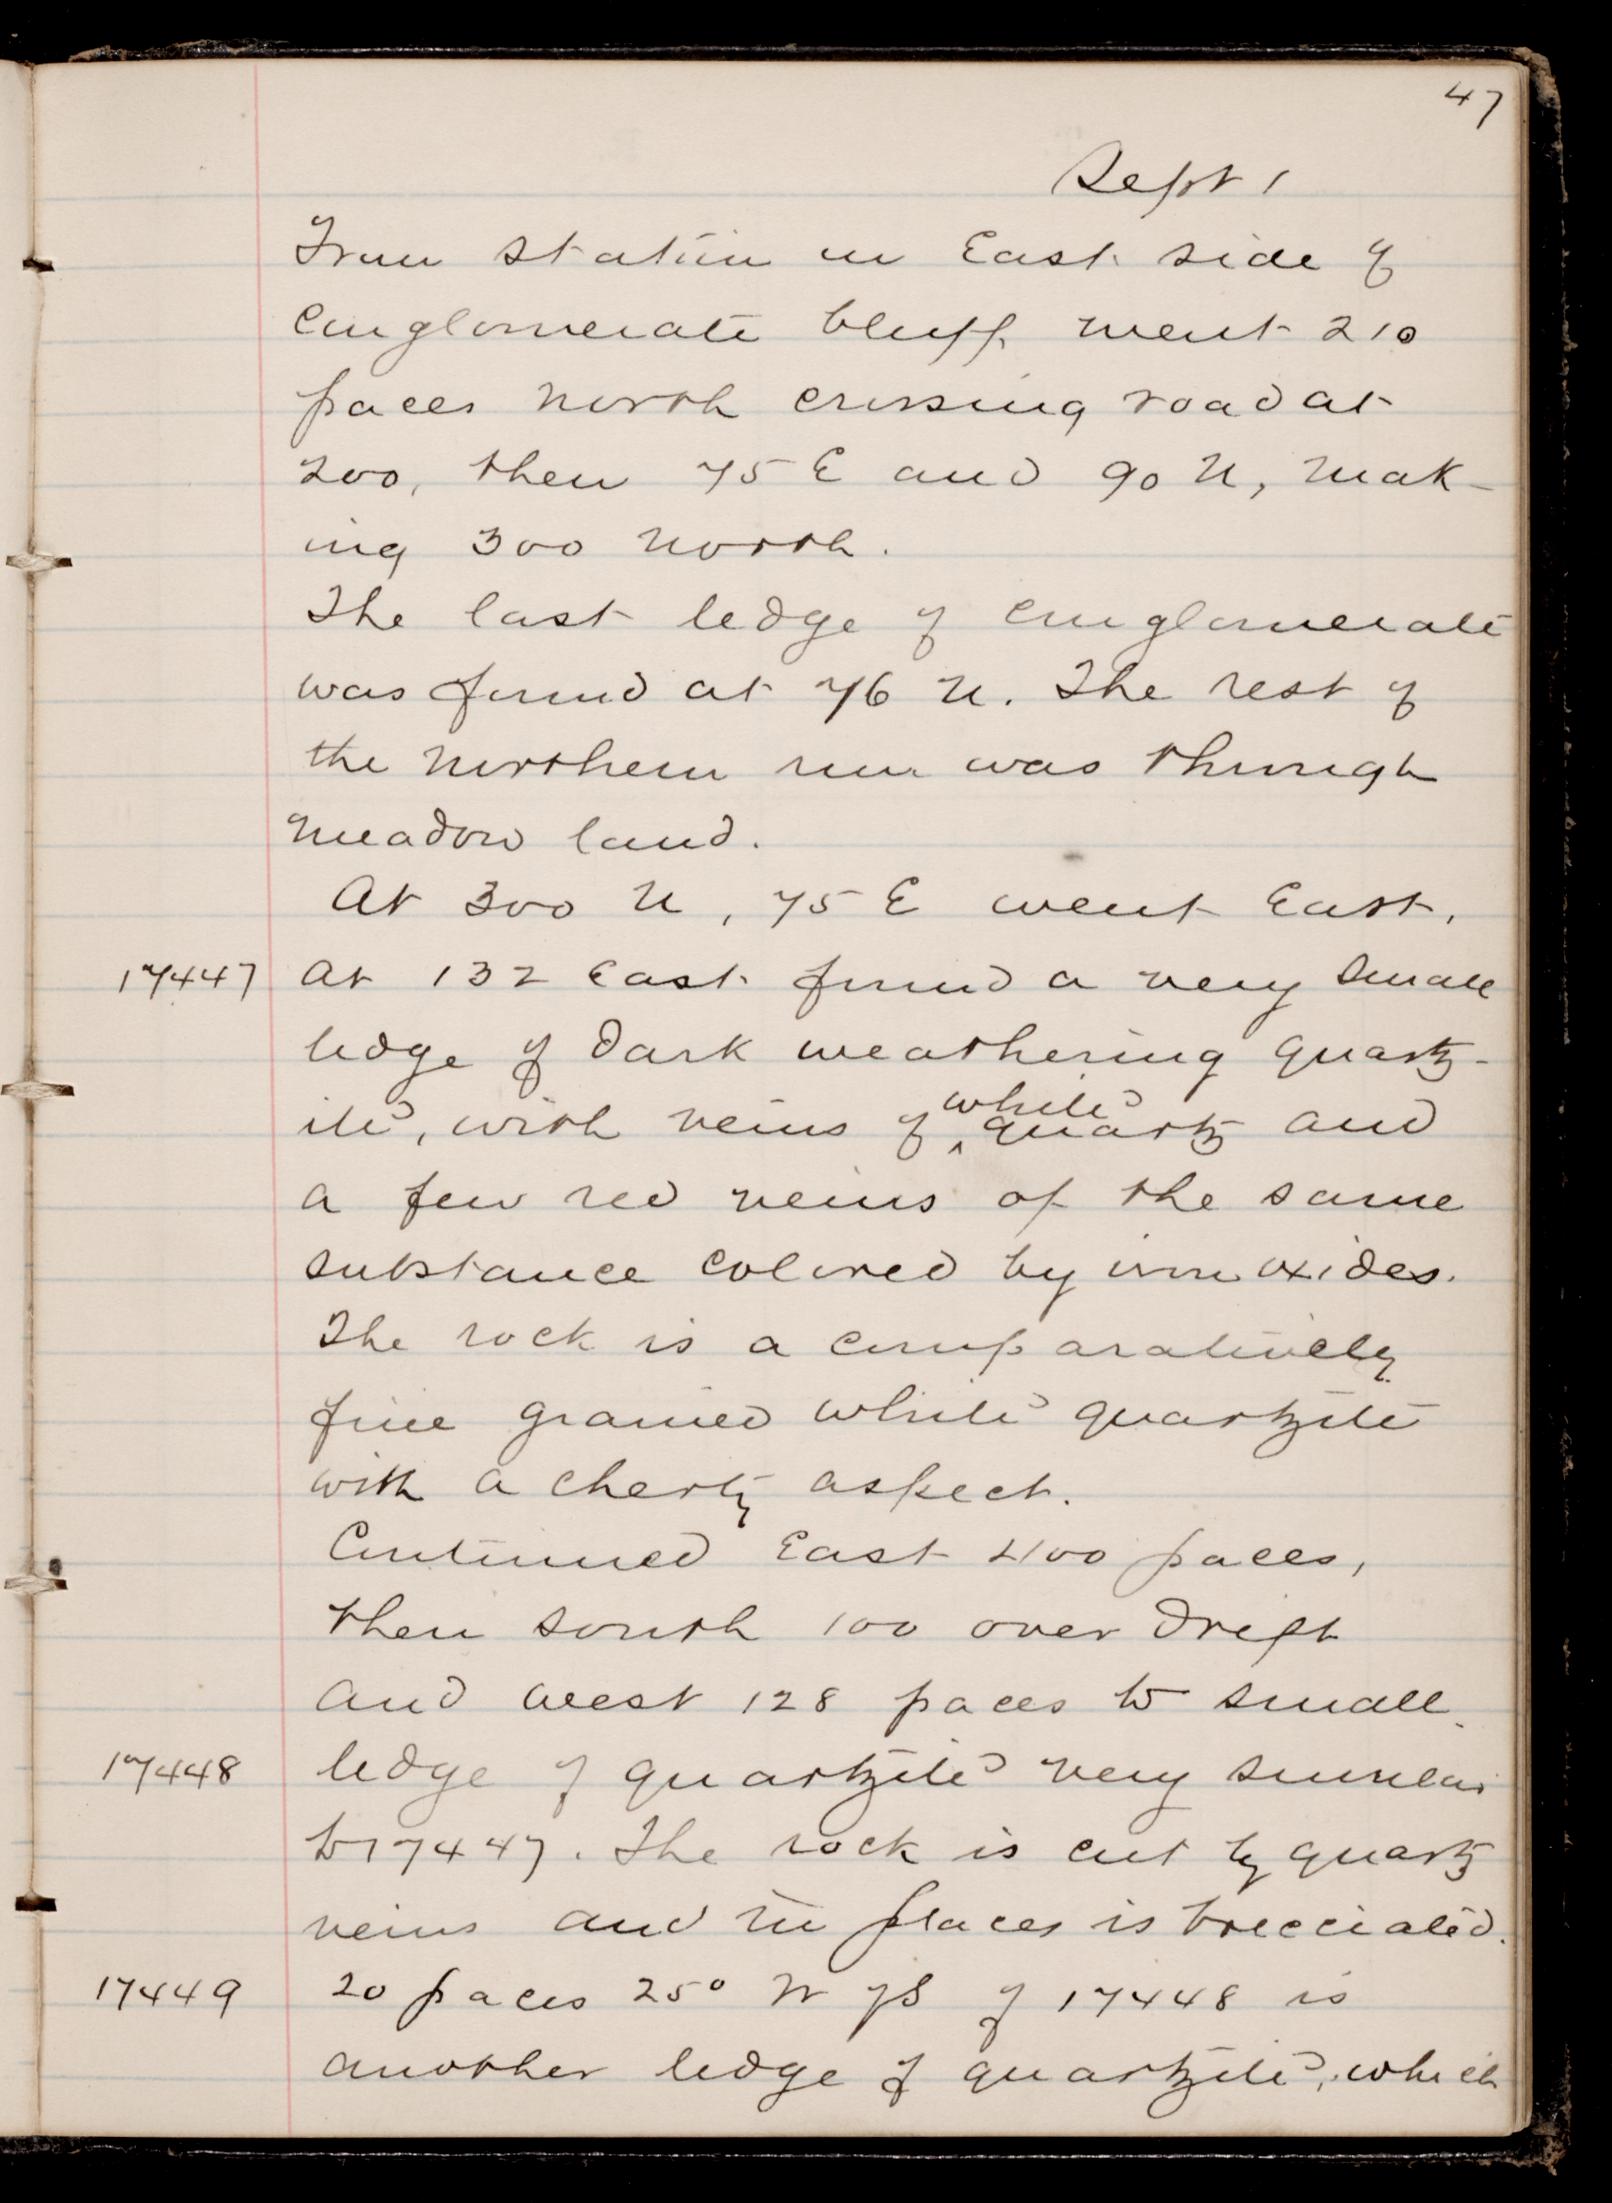 47
Sept 1
From station on East side of
conglomerate bluff went 210
paces north crossing road at
200, then 75 E and 90 N, mak-
ing 300 north.
The last ledge of conglomerate
was found at 76 N. The rest of
the northern run was through
meadow land.
At 300 N, 75 E went East.
17447 At 132 East found a very small
ledge of dark weathering quartz-
ite, with veins of ^white quartz and
a few red veins of the same
substance colored by iron oxides.
The rock is a comparatively
fine grained white quartzite
with a cherty aspect.
Continued East 400 paces,
then south 100 over drift
and west 128 paces to small
17448 ledge of quartzite very similar
to 17447. The rock is cut by quartz
veins and in places is brecciated.
17449 20 paces 25° W of S of 17448 is
another ledge of quartzite, which